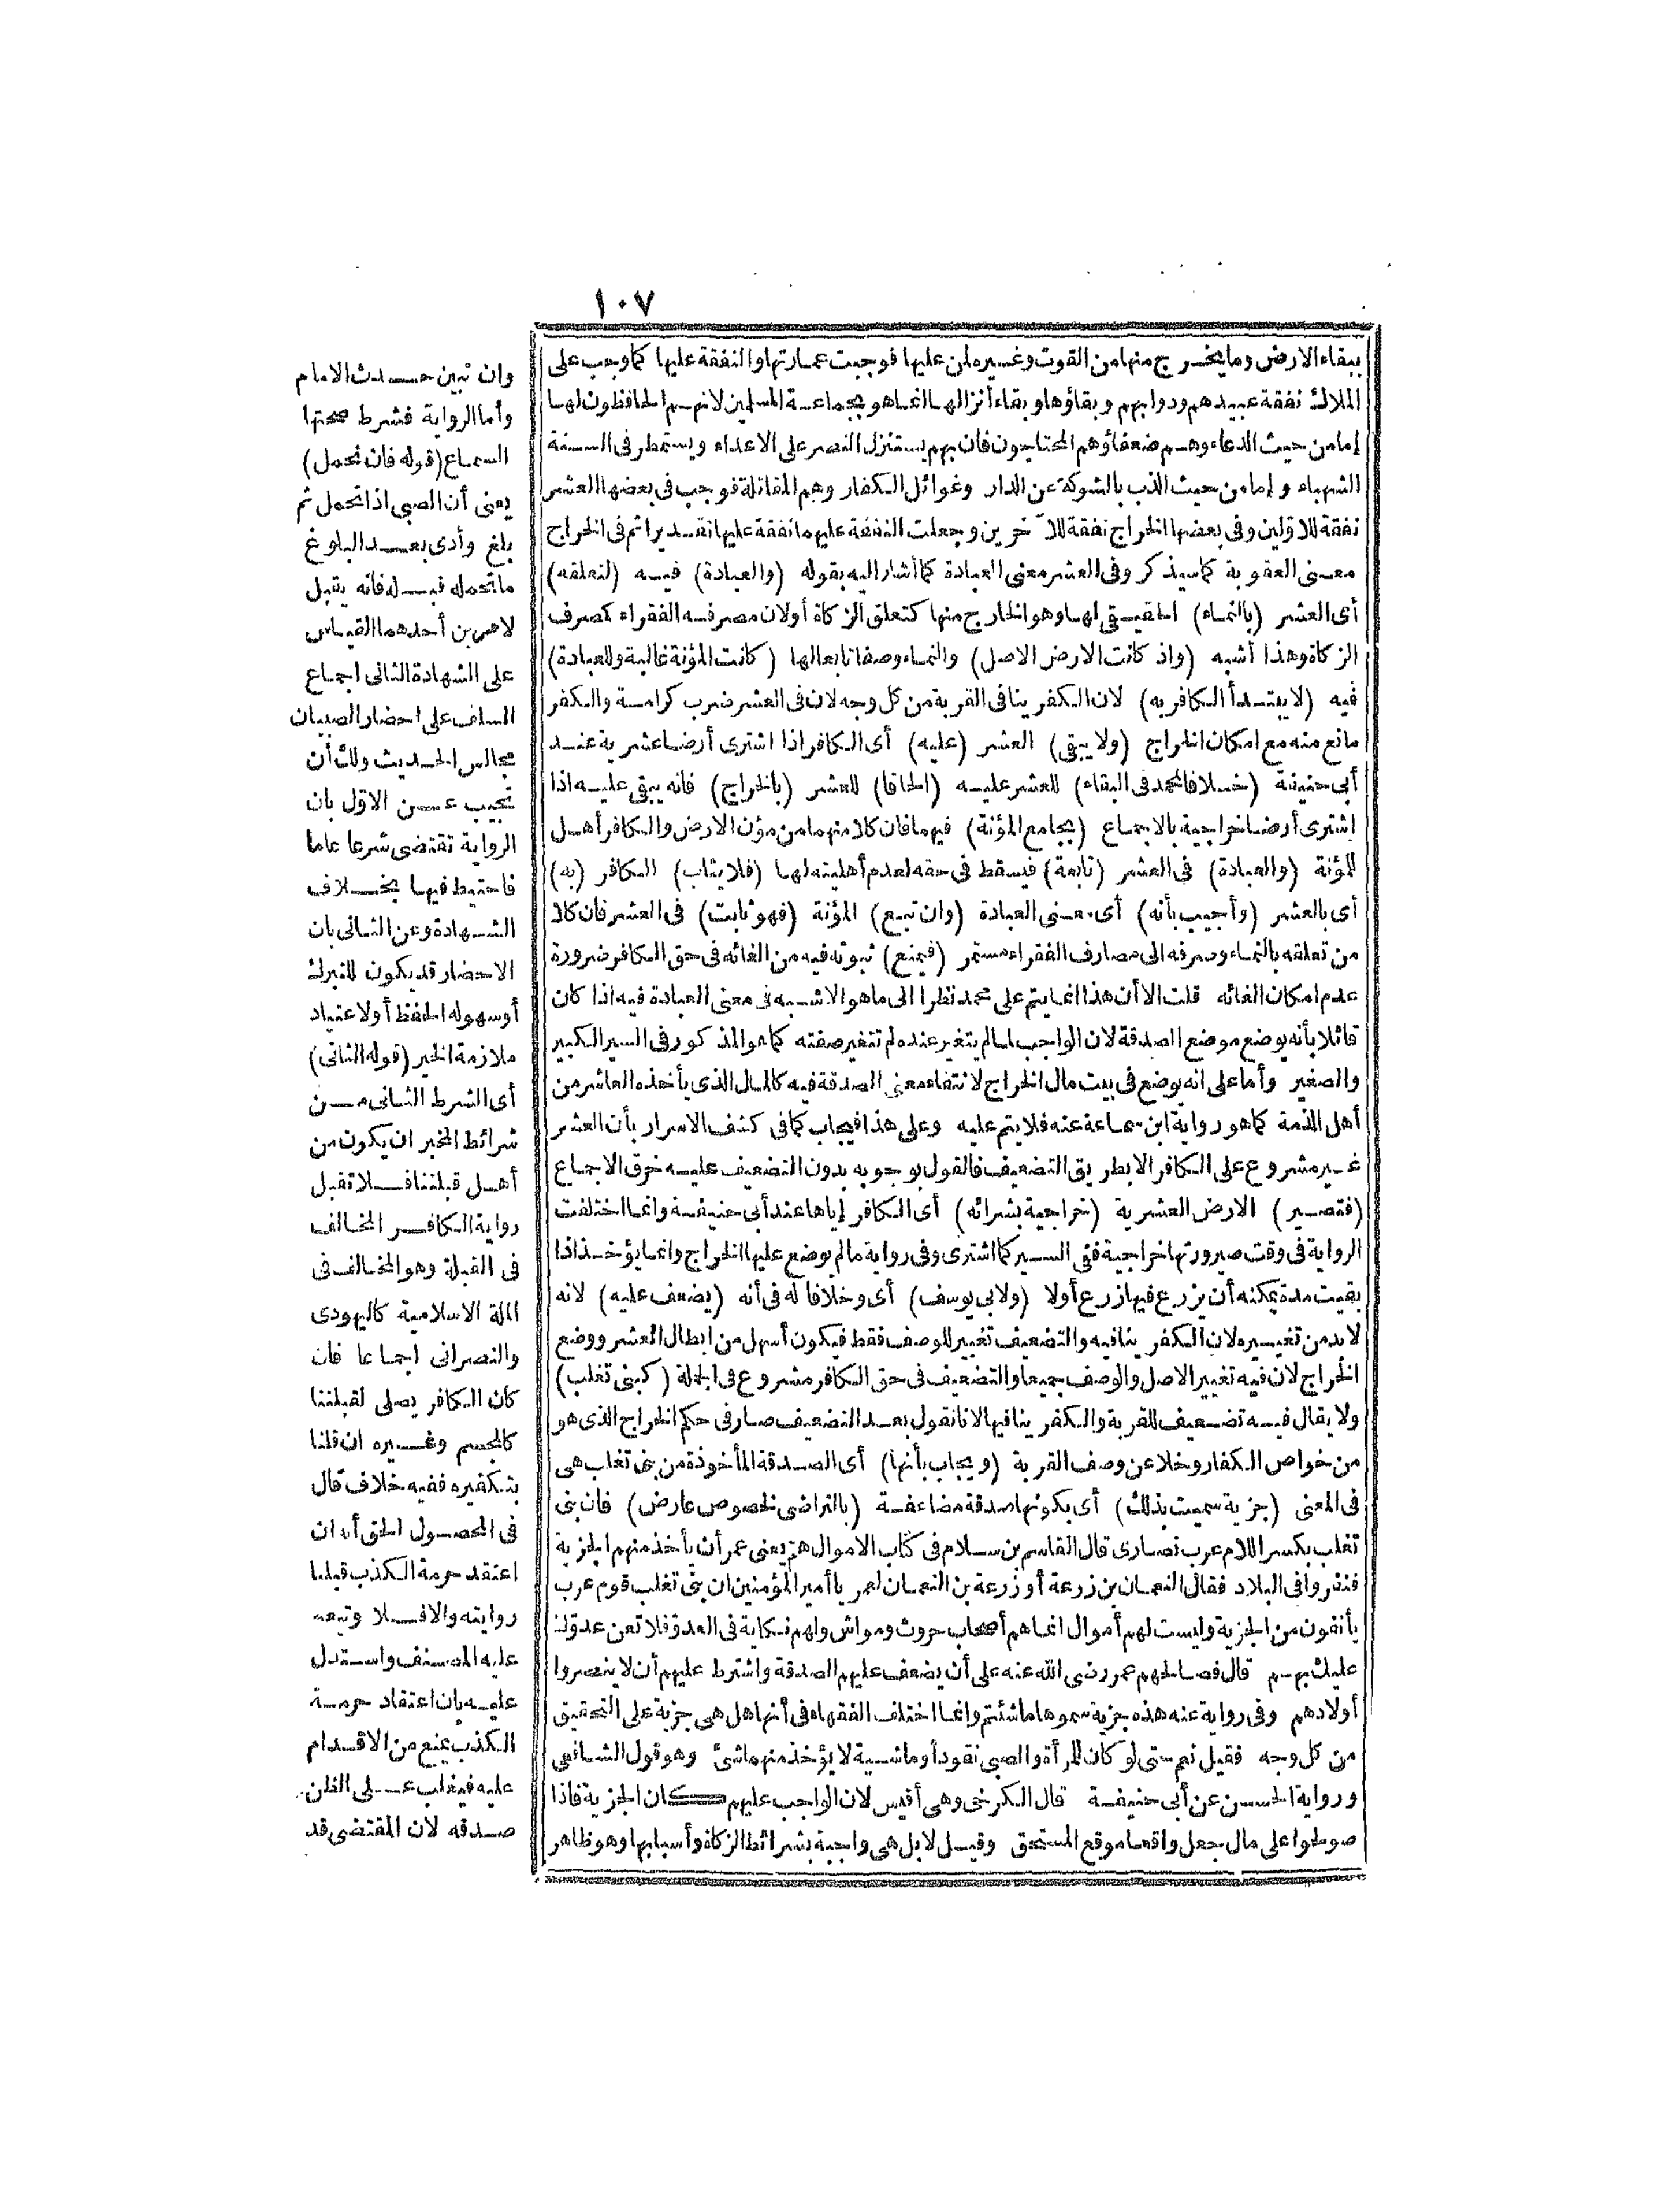 ١٠٧
ببقاء الارض وما يخرج منها من القوت وغيره لمن عليها فوجبت عمارتها والنفقة عليها كما وجب على
الملاك نفقة عبيدهم ودوابهم وبقاؤها وبقاء أنزالها انما هو بجماعة المسلمين لانهم هم الحافظون لها
إما من حيث الدعاء وهم ضعفاؤهم المحتاجون فان بهم يستنزل النصر على الاعداء ويستمطر فى السنة
الشهباء وإما من حيث الذب بالشوكة عن الدار وغوائل الكفار وهم المقاتلة فوجب فى بعضها العشر
نفقة للاولين وفى بعضها الخراج نفقة للآخرين وجعلت النفقة عليهما نفقة عليها تقديرا ثم فى الخراج
معنى العقوبة كما سيذكر وفى العشر معنى العبادة كما أشار اليه بقوله (والعبادة) فيه (لتعلقه)
أى العشر (بالنماء) الحقيقى لها وهو الخارج منها كتعلق الزكاة أولان مصرفه الفقراء كمصرف
الزكاة وهذا أشبه (واذ كانت الارض الاصل) والنماء وصفا تابعا لها (كانت المؤنة غالبة وللعبادة)
فيه (لا يبتدأ الكافر به) لان الكفر ينافى القربة من كل وجه لان فى العشر ضرب كرامة والكفر
مانع منه مع امكان الخراج (ولا يبقى) العشر (عليه) أى الكافر اذا اشترى أرضا عشرية عند
أبى حنيفة (خلافا لمحمد فى البقاء) للعشر عليه (الحاقا) للعشر (بالخراج) فانه يبقى عليه اذا
اشترى أرضا خراجية بالاجماع (بجامع المؤنة) فيهما فان كلا منهما من مؤن الارض والكافر أهل
للمؤنة (والعبادة) فى العشر (تابعة) فيسقط فى حقه لعدم أهليته لها (فلا يثاب) الكافر (به)
أى بالعشر (وأجيب بأنه) أى معنى العبادة (وان تبع) المؤنة (فهو ثابت) فى العشر فان كلا
من تعلقه بالنماء وصرفه الى مصارف الفقراء مستمر (فيمنع) ثبوته فيه من الغائه فى حق الكافر ضرورة
عدم امكان الغائه قلت الا أن هذا انما يتم على محمد نظرا الى ما هو الاشبه فى معنى العبادة فيه اذا كان
قائلا بأنه يوضع موضع الصدقة لان الواجب لما لم يتغير عنده لم تتغير صفته كما هو المذكور فى السير الكبير
والصغير وأما على انه يوضع فى بيت مال الخراج لانتفاء معنى الصدقة فيه كالمال الذى يأخذه العاشر من
أهل الذمة كما هو رواية ابن سماعة عنه فلا يتم عليه وعلى هذا فيجاب كما فى كشف الاسرار بأن العشر
غير مشروع على الكافر الا بطريق التضعيف فالقول بوجوبه بدون التضعيف عليه خرق الاجماع
(فتصير) الارض العشرية (خراجية بشرائه) أى الكافر إياها عند أبى حنيفة وانما اختلفت
الرواية فى وقت صيرورتها خراجية ففى السير كما اشترى وفى رواية ما لم يوضع عليها الخراج وانما يؤخذ اذا
بقيت مدة يمكنه أن يزرع فيها زرع أولا (ولابى يوسف) أى وخلافا له فى أنه (يضعف عليه) لانه
لابد من تغييره لان الكفر ينافيه والتضعيف تغيير للوصف فقط فيكون أسهل من ابطال العشر ووضع
الخراج لان فيه تغيير الاصل والوصف جميعا والتضعيف فى حق الكافر مشروع فى الجملة (كبنى تغلب)
ولا يقال فيه تضعيف للقربة والكفر ينافيها لانا نقول بعد التضعيف صار فى حكم الخراج الذى هو
من خواص الكفار وخلا عن وصف القربة (ويجاب بأنها) أى الصدقة المأخوذة من بنى تغلب هى
فى المعنى (جزية سميت بذلك) أى بكونها صدقة مضاعفة (بالتراضى لخصوص عارض) فان بنى
تغلب بكسر اللام عرب نصارى قال القاسم بن سلام فى كتاب الاموال هم يعنى عمر أن يأخذ منهم الجزية
فنفروا فى البلاد فقال النعمان بن زرعة أو زرعة بن النعمان لعمر يا أمير المؤمنين ان بنى تغلب قوم عرب
يأنفون من الجزية وليست لهم أموال انما هم أصحاب حروث ومواش ولهم نكاية فى العدو فلا تعن عدوك
عليك بهم قال فصالحهم عمر رضى الله عنه على أن يضعف عليهم الصدقة واشترط عليهم أن لا ينصروا
أولادهم وفى رواية عنه هذه جزية سموها ما شئتم وانما اختلف الفقهاء فى أنها هل هى جزية على التحقيق
من كل وجه فقيل نعم حتى لو كان للمرأة والصبى نقود أو ماشية لا يؤخذ منهما شئ وهو قول الشافعى
ورواية الحسن عن أبى حنيفة قال الكرخى وهى أقيس لان الواجب عليهم كان الجزية فاذا
صولحوا على مال جعل واقعا موقع المستحق وقيل لا بل هى واجبة بشرائط الزكاة وأسبابها وهو ظاهر
وان تبين حدث الامام
وأما الرواية فشرط صحتها
السماع (قوله فان تحمل)
يعنى أن الصبى اذا تحمل ثم
بلغ وأدى بعد البلوغ
ما تحمله قبله فانه يقبل
لامرين أحدهما القياس
على الشهادة الثانى اجماع
السلف على احضار الصبيان
مجالس الحديث ولك أن
تجيب عن الاول بان
الرواية تقتضى شرعا عاما
فاحتيط فيها بخلاف
الشهادة وعن الثانى بان
الاحضار قد يكون للتبرك
أو سهولة الحفظ أو لاعتياد
ملازمة الخير (قوله الثانى)
أى الشرط الثانى من
شرائط المخبر ان يكون من
أهل قبلتنا فلا تقبل
رواية الكافر المخالف
فى القبلة وهو المخالف فى
الملة الاسلامية كاليهودى
والنصرانى اجماعا فان
كان الكافر يصلى لقبلتنا
كالمجسم وغيره ان قلنا
بتكفيره ففيه خلاف قال
فى المحصول الحق أنه ان
اعتقد حرمة الكذب قبلنا
روايته والا فلا وتبعه
عليه المصنف واستدل
عليه بان اعتقاد حرمة
الكذب يمنع من الاقدام
عليه فيغلب على الظن
صدقه لان المقتضى قد